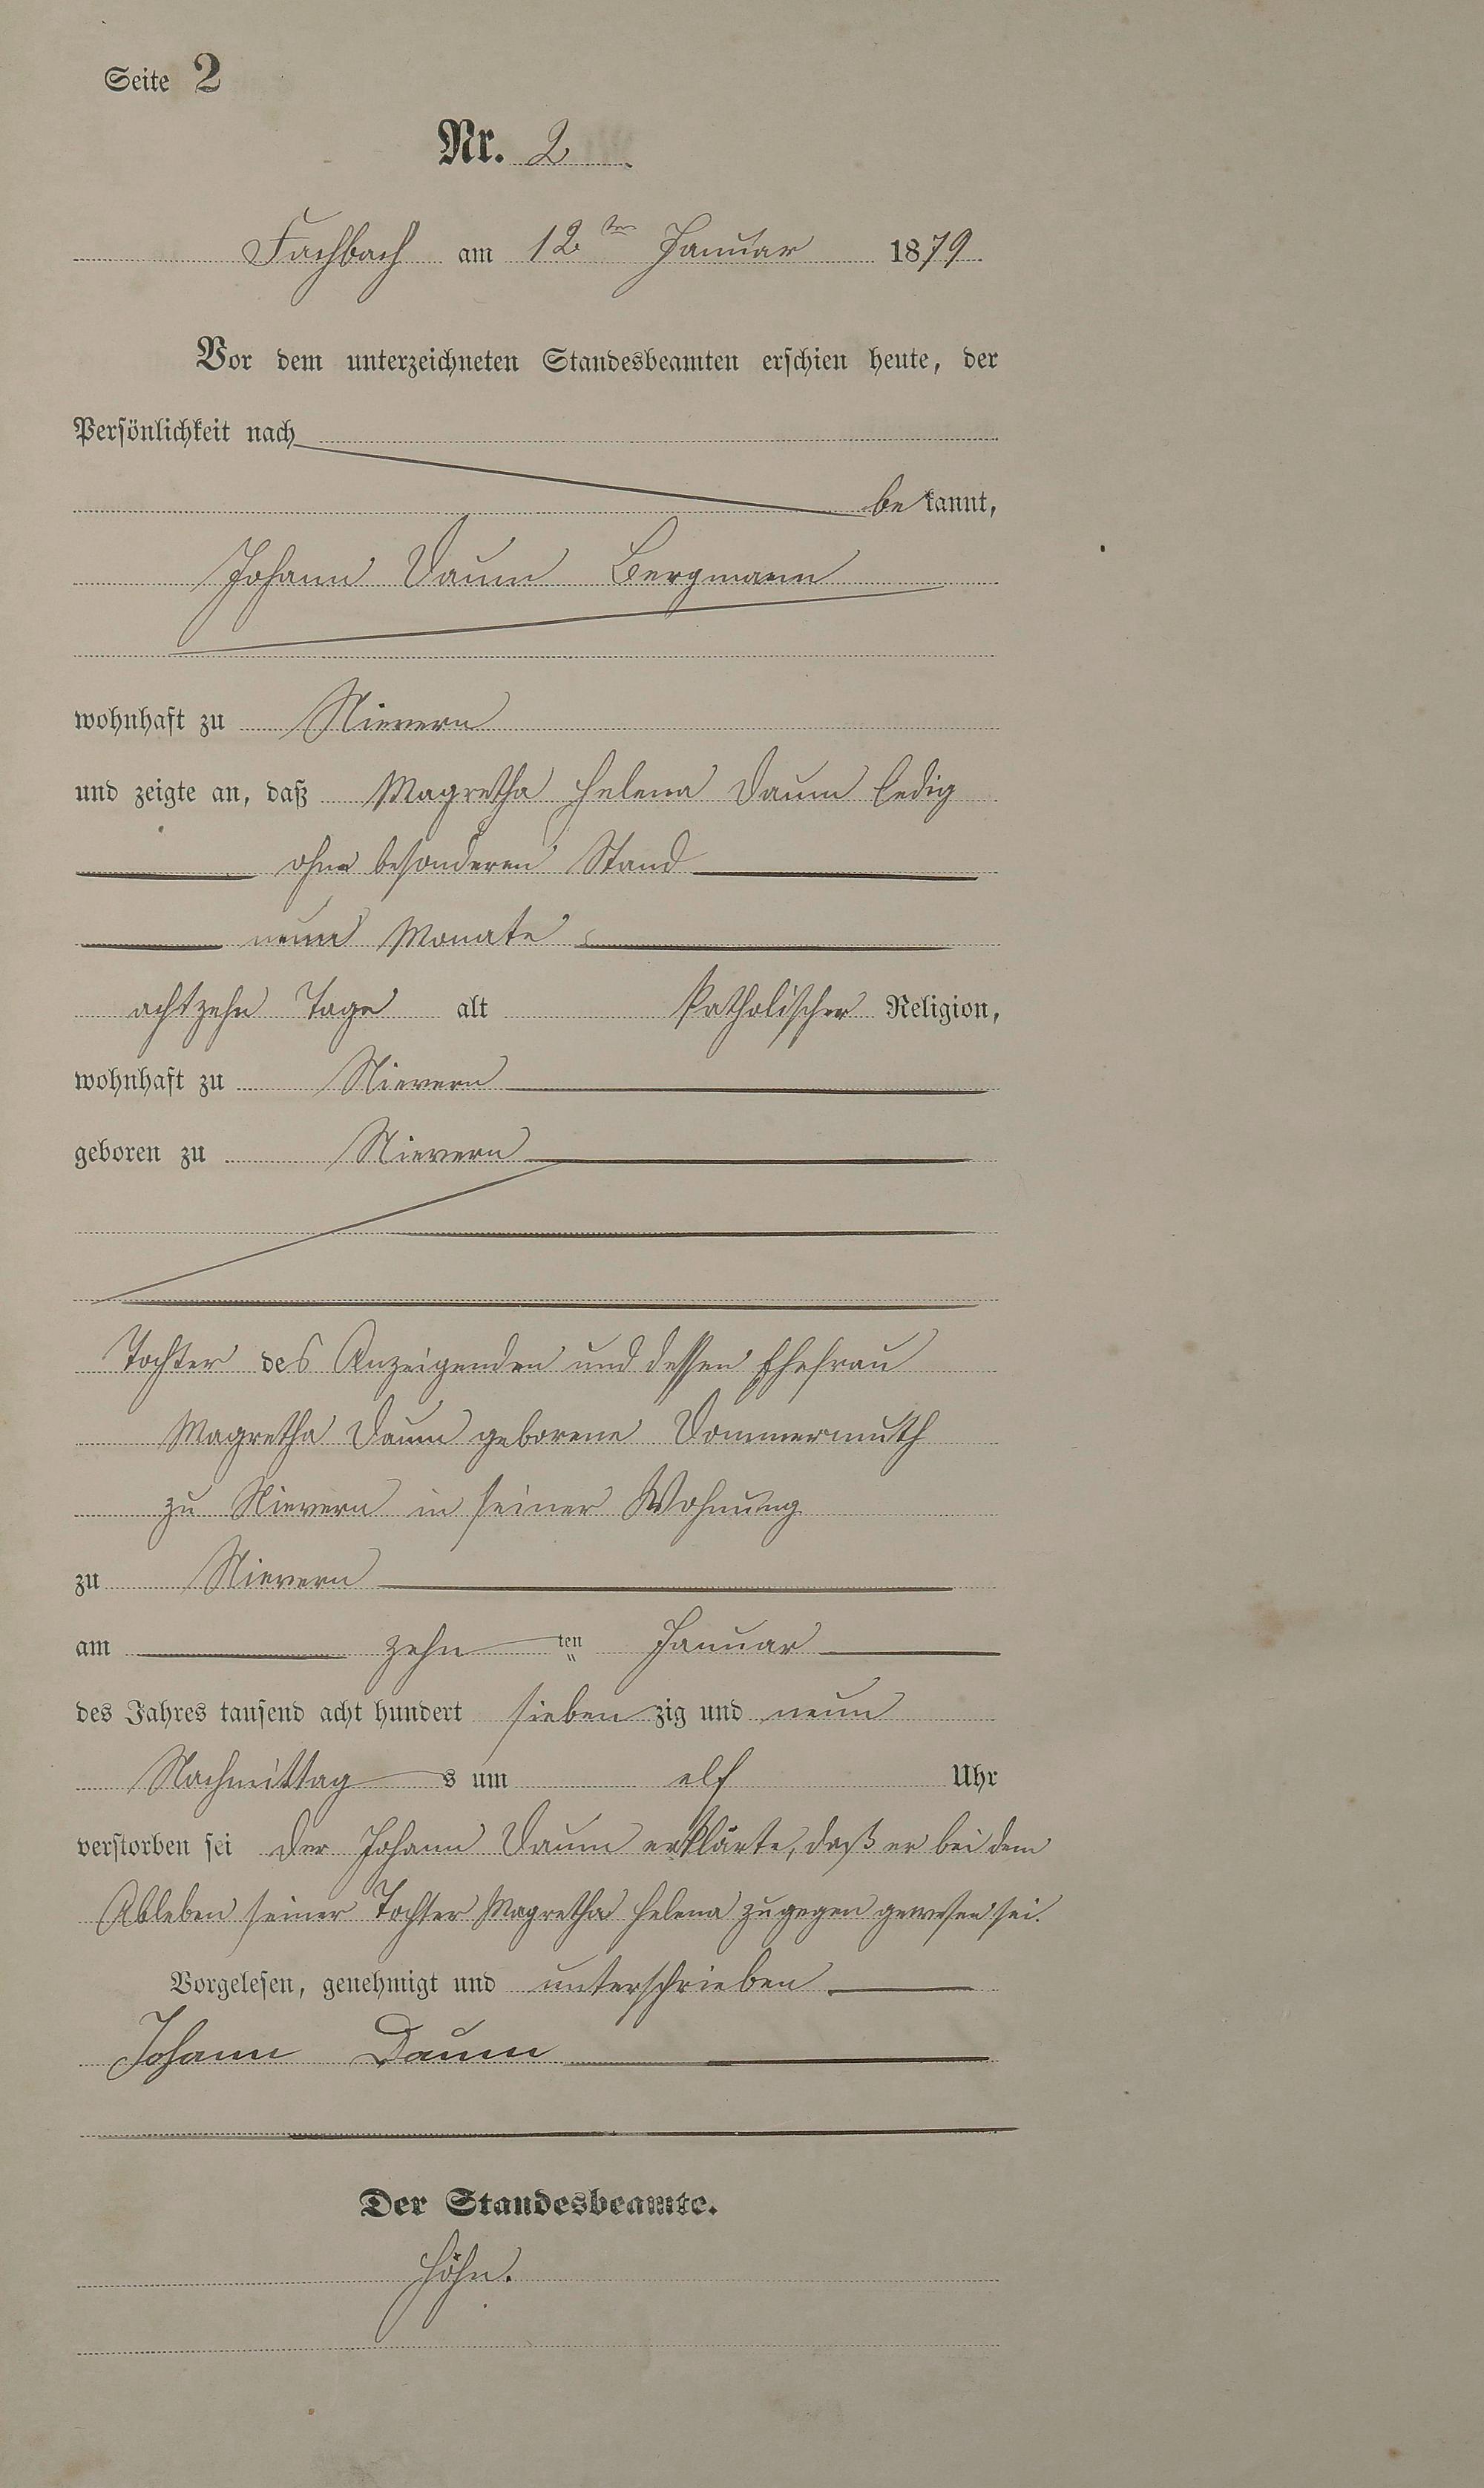 Seite 2
Nr. 2
Fachbach am 12ten Januar 1879
Vor dem unterzeichneten Standesbeamten erschien heute, der
Persönlichkeit nach
bekannt,
Johann Daum Bergmann
wohnhaft zu Nievern
und zeigte an, daß Magretha Helena Daum ledig
ohne besonderen Stand
neun Monate
achtzehn Tage alt katholischer Religion,
wohnhaft zu Nievern
geboren zu Nievern
Tochter des Anzeigenden und dessen Ehefrau
Magretha Daum geborene Dommermuth
zu Nievern in seiner Wohnung
zu Nievern
am zehn ten Januar
des Jahres tausend acht hundert sieben zig und neun
Nachmittag s um elf Uhr
verstorben sei der Johann Daum erklärte, daß er bei dem
Ableben seiner Tochter Magretha Helena zugegen gewesen sei.
Vorgelesen, genehmigt und unterschrieben
Johann Daum
Der Standesbeamte.
Höhn.